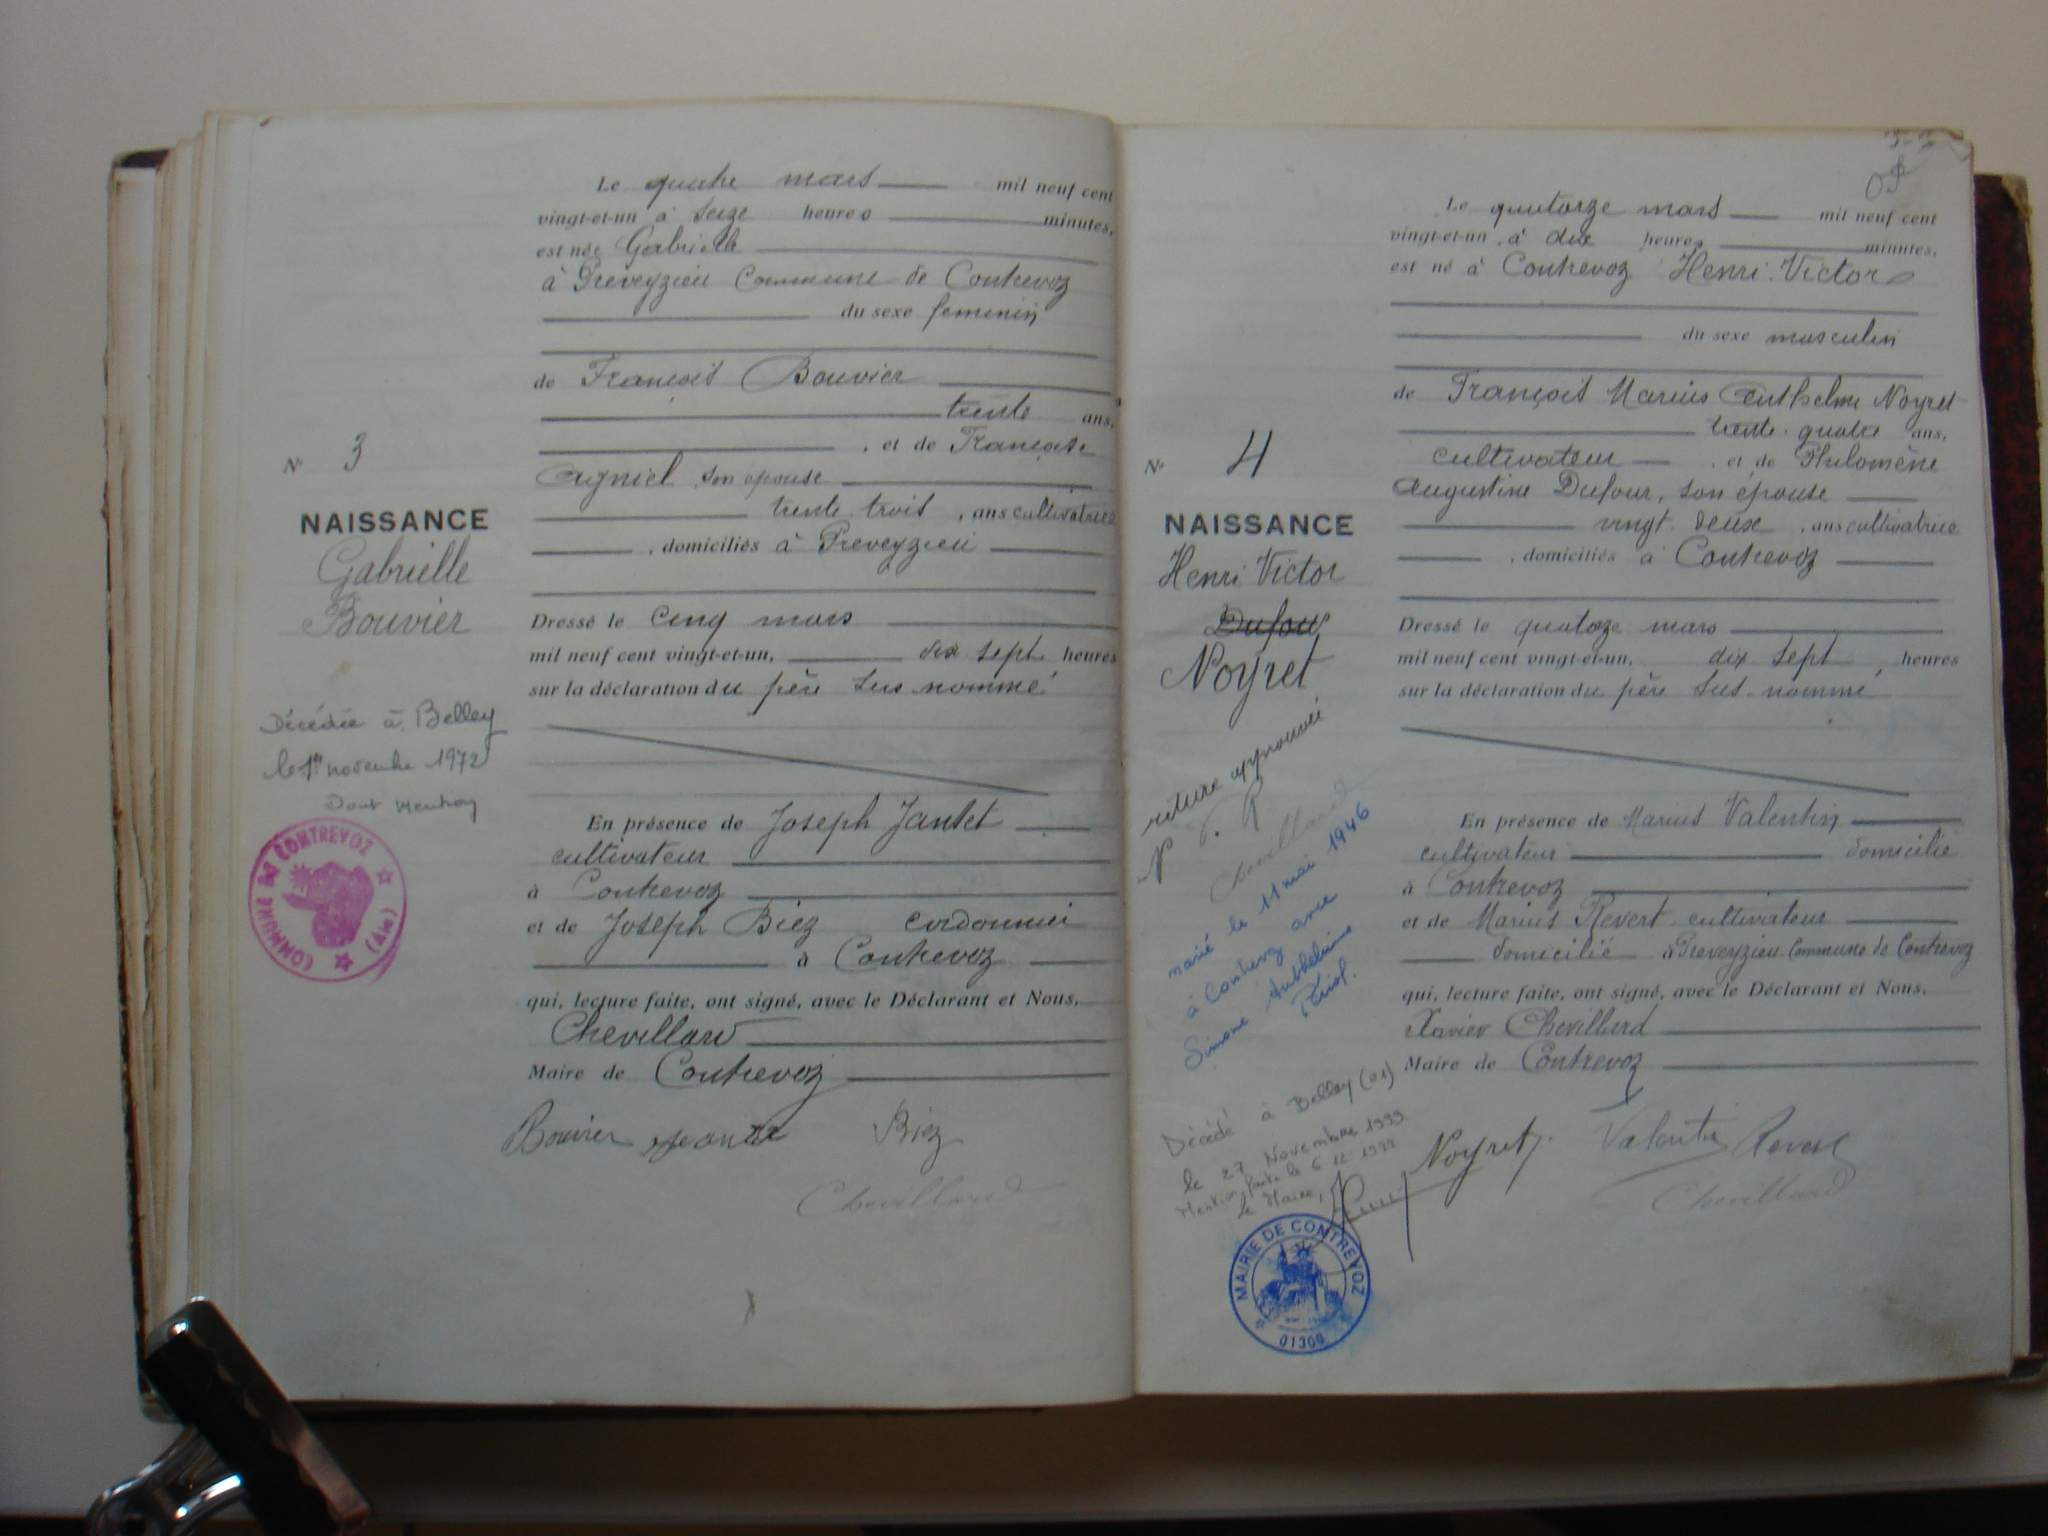 Le quatre mars mil neuf cent
vingt-et-un à seize heures minutes,
est née Gabrielle
à Preveyzieu Commune de Contrevoz
du sexe feminin
de François Bouvier
trente ans,
, et de Françoise
Agniel son épouse
trente trois , ans cultivatrice
, domiciliés à Preveyzieu
N° 3
NAISSANCE
Gabrielle
Bouvier
Dressé le cinq mars
mil neuf cent vingt-et-un, dix sept heures
sur la déclaration du père sus nommé
Décédée à Belley
le 1er novembre 1972
Dont mention
COMMUNE DE CONTREVOZ
(Ain)
En présence de Joseph Jantet
cultivateur
à Contrevoz
et de Joseph Biez cordonnier
à Contrevoz
qui, lecture faite, ont signé, avec le Déclarant et Nous,
Chevillard
Maire de Contrevoz
Bouvier Biez
Chevillard
Le quatorze mars mil neuf cent
vingt-et-un à dix heures minutes,
est né à Contrevoz Henri Victor
du sexe masculin
de François Marius Anthelme Noyret
trente-quatre ans,
cultivateur , et de Philomène
Augustine Dufour, son épouse
vingt deux , ans cultivatrice
, domiciliés à Contrevoz
N° 4
NAISSANCE
Henri Victor
Dufour
Noyret
Dressé le quatorze mars
mil neuf cent vingt-et-un, dix sept heures
sur la déclaration du père sus-nommé
rature approuvée
Chevillard
marié le 11 mai 1946
à Contrevoz avec
Simone Anthelmine
Décédé à Belley (01)
le 27 Novembre 1999
Mention faite le 6.12.1999
le Maire,
MAIRIE DE CONTREVOZ
01300
En présence de Marius Valentin
cultivateur domicilié
à Contrevoz
et de Marius Revert cultivateur
domicilié à Preveyzieu Commune de Contrevoz
qui, lecture faite, ont signé, avec le Déclarant et Nous,
Xavier Chevillard
Maire de Contrevoz
Noyret Valentin Revert
Chevillard